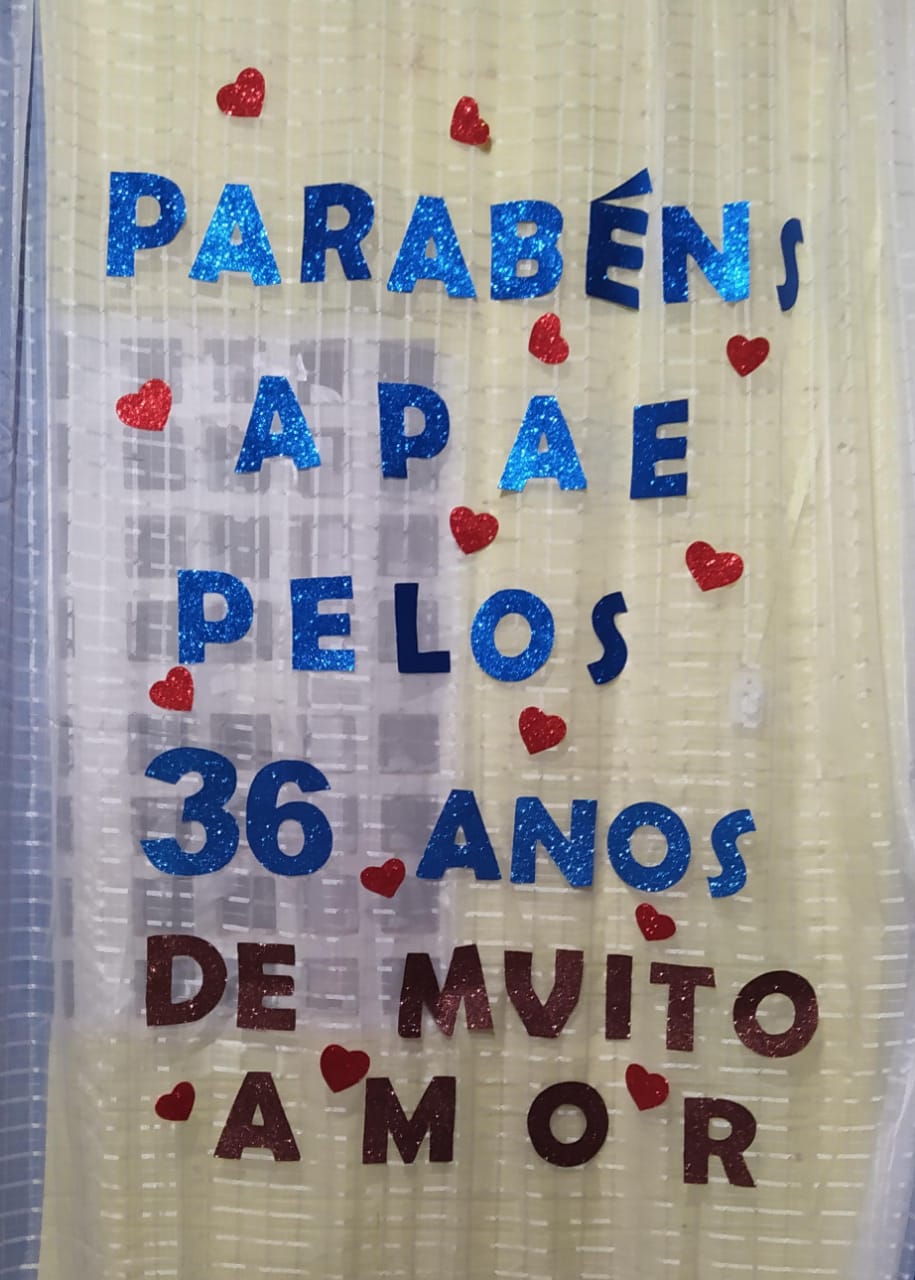 PARABÉNS
APAE
PELOS
36 ANOS
DE MUITO
AMOR